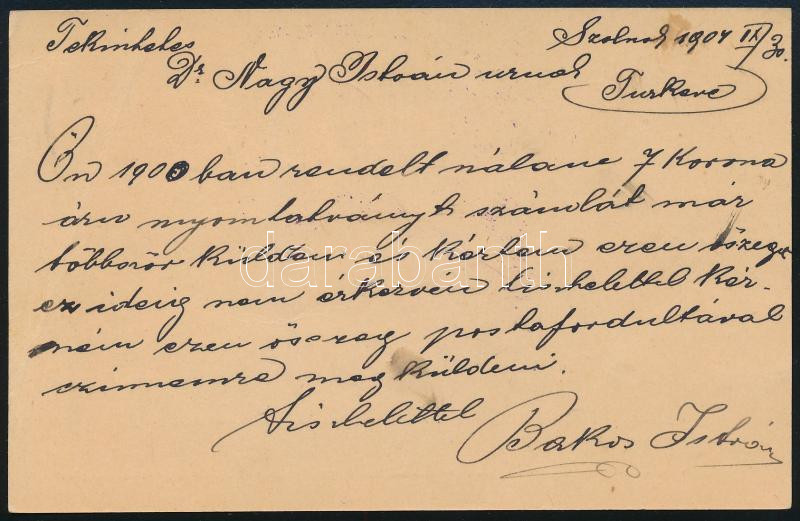 Tekintetes Szolnok 1904 IX/30.
Dr Nagy István urnak
Turkeve
Ön 1900ban rendelt nálam 7 Korona
áru nyomtatványt számlát már
többször küldtem és kértem ezen öszeget
ez ideig nem érkezvén tisztelettel kér-
ném ezen öszeg postafordultával
czimemre meg küldeni.
Tisztelettel
Bakos István
darabanth